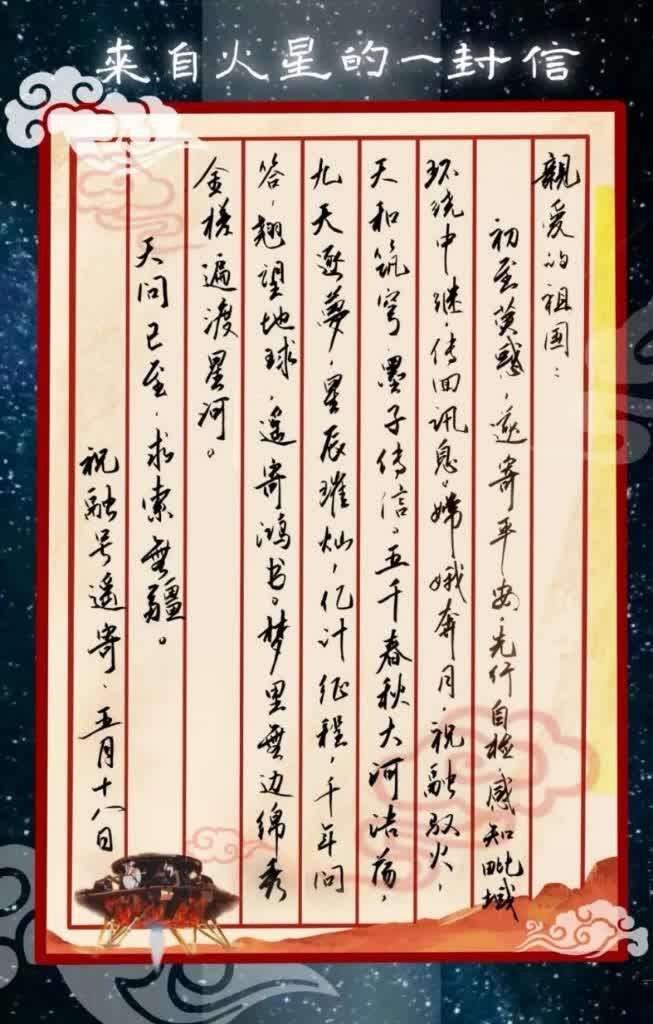 來自火星的一封信
親爱的祖国：
初至荧惑，遥寄平安。先行自检，感知毗域
环绕中继，传回讯息。嫦娥奔月，祝融驭火，
天和筑穹，墨子传信。五千春秋大河浩荡，
九天逐夢，星辰璀灿，亿计征程，千年问
答，翘望地球，遥寄鸿书。梦里無边绵秀
金槎遍渡星河。
天问已至，求索無疆。
祝融号遥寄，五月十八日